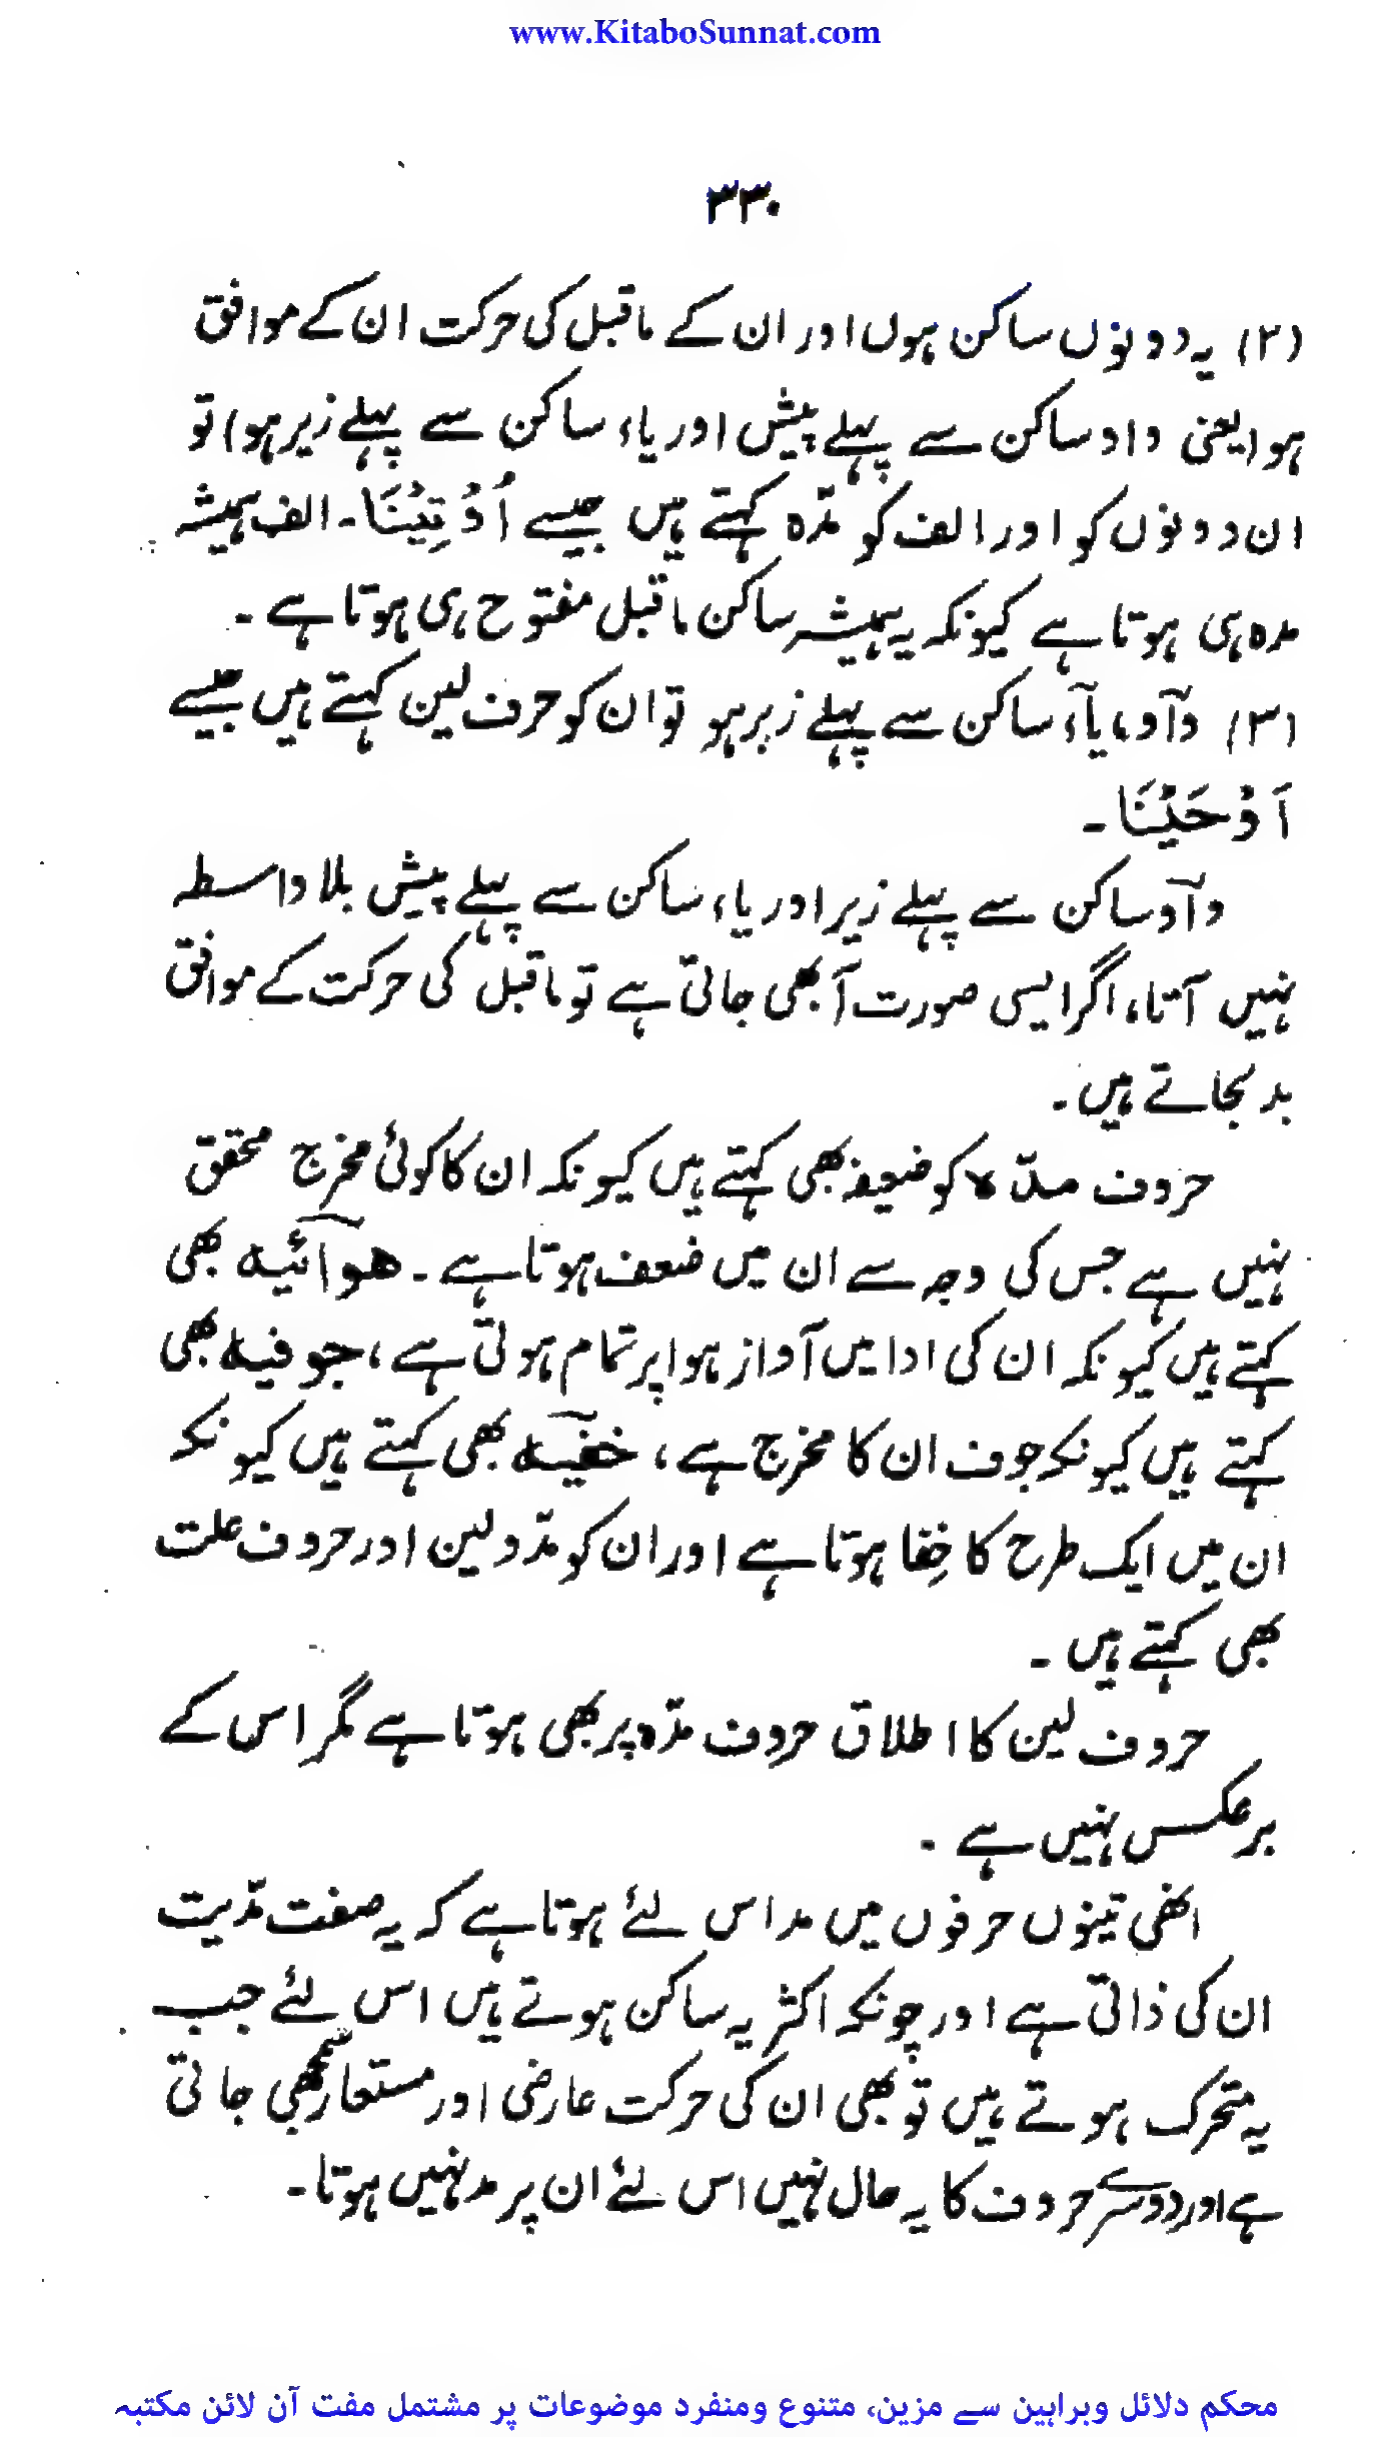 www.KitaboSunnat.com
۳۳۰
(۲) یہ دونوں ساکن ہوں اور ان کے ماقبل کی حرکت ان کے موافق
ہو (یعنی واو ساکن سے پہلے پیش اور یاء ساکن سے پہلے زیر ہو) تو
ان دونوں کو اور الف کو مدّہ کہتے ہیں جیسے اُوْتِيْنَا۔ الف ہمیشہ
مدہ ہی ہوتا ہے کیونکہ یہ ہمیشہ ساکن ماقبل مفتوح ہی ہوتا ہے۔
(۳) وآو، یآء ساکن سے پہلے زبر ہو تو ان کو حرف لین کہتے ہیں جیسے
اَوْحَيْنَا۔
وآو ساکن سے پہلے زیر اور یاء ساکن سے پہلے پیش بلا واسطہ
نہیں آتا، اگر ایسی صورت آ بھی جاتی ہے تو ماقبل کی حرکت کے موافق
بدلجاتے ہیں۔
حروف مدّہ کو ضعیفہ بھی کہتے ہیں کیونکہ ان کا کوئی مخرج محقق
نہیں ہے جس کی وجہ سے ان میں ضعف ہوتا ہے۔ ھوآئیہ بھی
کہتے ہیں کیونکہ ان کی ادا میں آواز ہوا پر تمام ہوتی ہے، جوفیہ بھی
کہتے ہیں کیونکہ جوف ان کا مخرج ہے، خفیّہ بھی کہتے ہیں کیونکہ
ان میں ایک طرح کا خِفا ہوتا ہے اور ان کو مدّ و لین اور حروف علت
بھی کہتے ہیں۔
حروف لین کا اطلاق حروف مدّہ پر بھی ہوتا ہے مگر اس کے
برعکس نہیں ہے۔
انھی تینوں حرفوں میں مد اس لئے ہوتا ہے کہ یہ صفت مدّیت
ان کی ذاتی ہے اور چونکہ اکثر یہ ساکن ہوتے ہیں اس لئے جب
یہ متحرک ہوتے ہیں تو بھی ان کی حرکت عارضی اور مستعار سمجھی جاتی
ہے اور دوسرے حروف کا یہ حال نہیں اس لئے ان پر مد نہیں ہوتا۔
محکم دلائل وبراہین سے مزین، متنوع ومنفرد موضوعات پر مشتمل مفت آن لائن مکتبہ